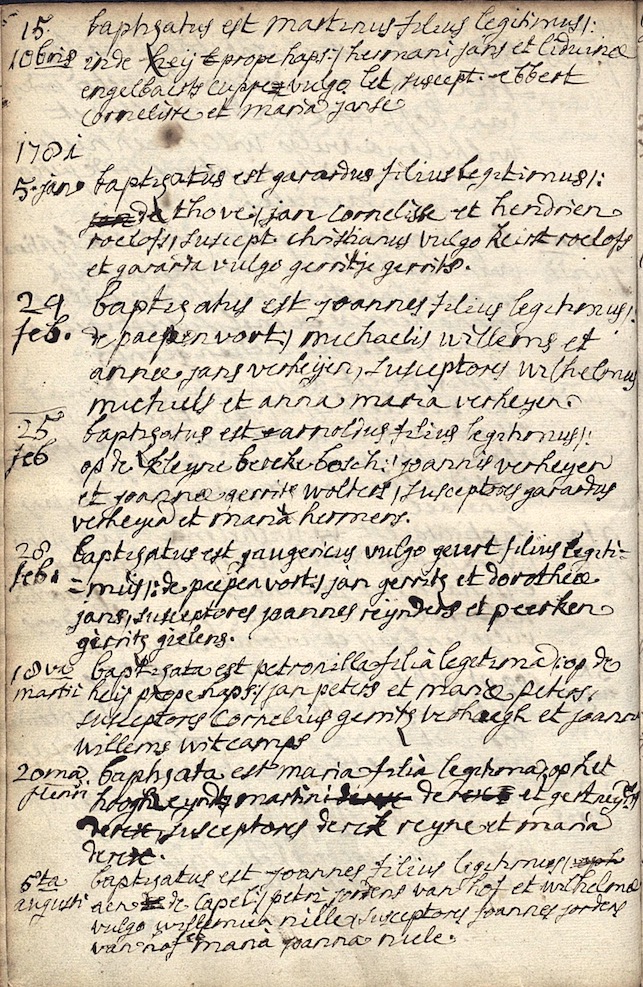 15. baptisatus est martinus filius legitimus /:
10bris inde heij prope haps :/ hermani jans et liduinæ
engelbaerts vulgo let suscept. ebbert
cornelisse et maria janse
1781
5. jan. baptisatus est garardus filius legitimus /:
de thove :/ jan cornelisse et hendrien
roelofs / suscept christianus vulgo kerst roelofs
et gararda vulgo gerritje gerrits.
24 baptisatus est joannes filius legitimus /:
feb. de paepenvort :/ michaelis willems et
annæ jans verheijen, susceptores wilhelmus
michiels et anna maria verheyen.
25 baptisatus est arnoldus filius legitimus /:
feb op de kleyne bercke bosch :/ joannis verheyen
et joannæ gerrits wolters / susceptores garardus
verheyen et maria hermens.
28 baptisatus est gaugericus vulgo geurt filius legiti-
feb. =mus /: de peepenvort :/ jan gerrits et dorotheæ
jans, susceptores joannes reynders et peerken
gerrits gielens.
18va baptisata est petronilla filia legitima /: op de
martii heij prope haps :/ jan peters et mariæ peters.
susceptores cornelius gerrits verhaegh et joanna
willems witcamps
20ma baptisata est maria filia legitima /: op het
hoogh eynde martini et
susceptores derck reyne et maria
derix.
5ta baptisatus est joannes filius legitimus /:
augusti aen de Capel :/ petri jordens van hof et wilhelmæ
vulgo willemien nille, susceptores joannes jordens
van hof et maria joanna niele.